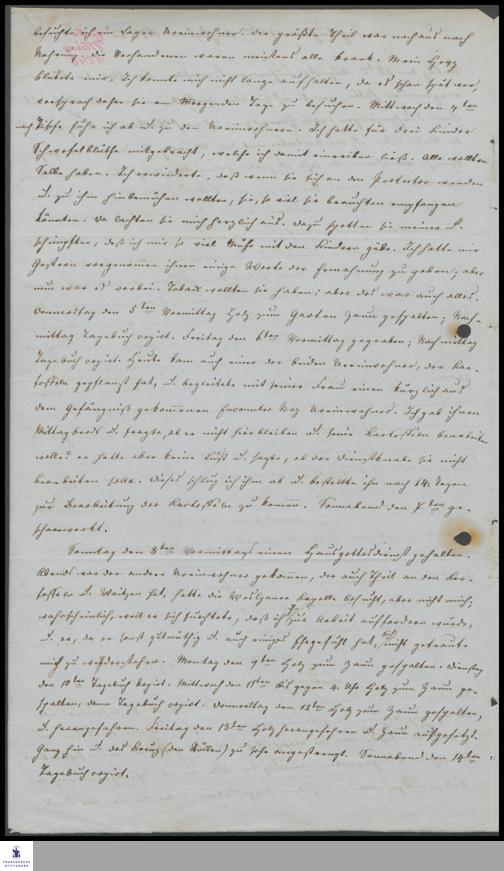 besuchte ich ein Lager Ureinwohner. Der größte Theil war noch aus nach
Nahrung, die Vorhandenen waren meistens alle krank. Mein Herz
blutete mir. Ich konnte mich nicht lange aufhalten, da es schon spät war,
versprach daher sie am Morgenden Tage zu besuchen. Mittwoch den 4ten
nach Tische fuhr ich ab u. zu den Ureinwohnern. Ich hatte für drei Kinder
Schwefelblüthe mitgebracht, welche ich damit einreiben ließ. Alle wollten
Salbe haben. Ich erwiederte, daß wenn sie sich an den Protector wenden
u. zu ihm hinkommen wollten, sie, so viel sie brauchten empfangen
könnten. Da lachten sie mich herzlich aus. Dazu spotten sie meiner u.
schimpften, daß ich mir so viel Mühe mit den Kindern gäbe. Ich hatte mir
Gestern vorgenommen ihnen einige Worte der Ermahnung zu geben; aber
nun war es vorbei. Taback wollten sie haben; aber das war auch alles.
Donnerstag den 5ten Vormittag Holz zum Garten Zaun gespalten; Nach-
mittag Tagebuch copirt. Freitag den 6ten Vormittag gegraben; Nachmittag
Tagebuch copirt. Heute kam auch einer der beiden Ureinwohner, der Kar-
toffeln gepflanzt hat, u. begleitete mit seiner Frau einen kürzlich aus
dem Gefängniß gekommenen Ureinwohner. Ich gab ihnen
Mittagbrod u. fragte, ob er nicht hierbleiben u. seine Kartoffeln bearbeiten
wolle; er hatte aber keine Lust u. sagte, ob der Dienstknabe sie nicht
bearbeiten solle. Dieses schlug ich ihm ab u. bestellte ihn nach 14 Tagen
zur Bearbeitung der Kartoffeln zu kommen. Sonnabend den 7ten ge-
schoowerkt.
Sonntag den 8ten Vormittags einen Hausgottesdienst gehalten.
Abends war der andere Ureinwohner gekommen, der auch Theil an den Kar-
toffeln u. Waitzen hat, hatte die Kapelle besucht, aber nicht mich;
wahrscheinlich, weil er sich fürchtete, daß ich ihn zur Arbeit auffordern würde,
u. er, da er sonst gutmüthig u. auch einiges Ehrgefühl hat, sich nicht getraute
mich zu widerstehen. Montag den 9ten Holz zum Zaun gespalten. Dienstag
den 10ten Tagebuch copirt. Mittwoch den 11ten bis gegen 4 Uhr Holz zum Zaun ge-
spalten; dann Tagebuch copirt. Donnerstag den 12ten Holz zum Zaun gespalten,
u. herangefahren. Freitag den 13ten Holz herangefahren u. Zaun aufgesetzt.
Ganz hin u. das Kreuz (den Rücken) zu sehr angestrengt. Sonnabend den 14ten
Tagebuch copirt.
FRANCKESCHE
STIFTUNGEN